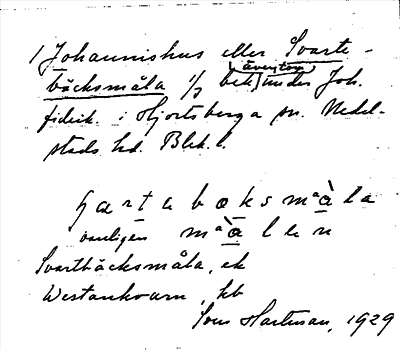 1 Johannishus eller Svarte-
bäcksmåla 1/7 bek. (även som) under Joh.
fideik. i Hjortsberga sn. Medel-
stads hd. Blek. l.
s̭artabəksmåla
vanligen målen
Svartbäcksmåla, ek
Westankvarn, kb
Som Hartman, 1929